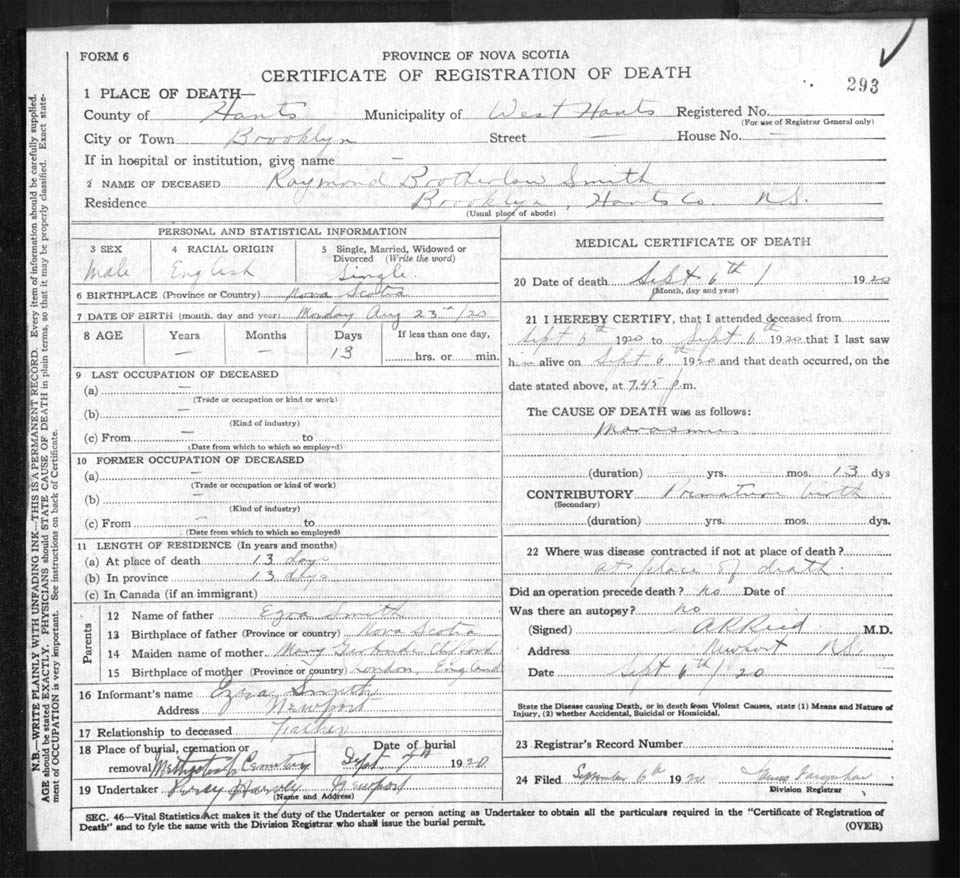 FORM 6
PROVINCE OF NOVA SCOTIA
CERTIFICATE OF REGISTRATION OF DEATH
293
1 PLACE OF DEATH—
County of Hants Municipality of West Hants Registered No.
(For use of Registrar General only)
City or Town Brooklyn Street — House No. —
If in hospital or institution, give name —
2 NAME OF DECEASED Raymond Smith
Residence Brooklyn, Hants Co. N.S.
(Usual place of abode)
PERSONAL AND STATISTICAL INFORMATION
3 SEX 4 RACIAL ORIGIN 5 Single, Married, Widowed or
Divorced (Write the word)
Male English Single.
6 BIRTHPLACE (Province or Country) Nova Scotia
7 DATE OF BIRTH (month, day and year) Monday Aug 23rd/20
8 AGE Years Months Days If less than one day,
— — 13 hrs. or min.
9 LAST OCCUPATION OF DECEASED
(a) —
(Trade or occupation or kind or work)
(b) —
(Kind of industry)
(c) From — to
(Date from which to which so employed)
10 FORMER OCCUPATION OF DECEASED
(a) —
(Trade or occupation or kind of work)
(b) —
(Kind of industry)
(c) From — to
(Date from which to which so employed)
11 LENGTH OF RESIDENCE (In years and months)
(a) At place of death 13 days
(b) In province 13 days
(c) In Canada (if an immigrant)
Parents
12 Name of father Ezra Smith
13 Birthplace of father (Province or country) Nova Scotia
14 Maiden name of mother Mary Gertrude
15 Birthplace of mother (Province or country) London, England
16 Informant's name Ezra Smith
Address Newport
17 Relationship to deceased Father
18 Place of burial, cremation or Date of burial
removal Methodist Cemetery Sept. 7th 1920
19 Undertaker Percy Newport
(Name and Address)
MEDICAL CERTIFICATE OF DEATH
20 Date of death Sept 6th / 1920
(Month, day and year)
21 I HEREBY CERTIFY, that I attended deceased from
Sept 6th 1920 to Sept 6th 1920 that I last saw
him alive on Sept 6th 1920 and that death occurred, on the
date stated above, at 7.45 p.m.
The CAUSE OF DEATH was as follows:
Marasmus
(duration) — yrs. — mos. 13 dys
CONTRIBUTORY Premature birth
(Secondary)
(duration) yrs. mos. dys.
22 Where was disease contracted if not at place of death?
at place of death.
Did an operation precede death? no Date of
Was there an autopsy? no
(Signed) A R Reid M.D.
Address Newport N.S.
Date Sept 6th/20
State the Disease causing Death, or in death from Violent Causes, state (1) Means and Nature of
Injury, (2) whether Accidental, Suicidal or Homicidal.
23 Registrar's Record Number
24 Filed September 6th 1920
Division Registrar
SEC. 46—Vital Statistics Act makes it the duty of the Undertaker or person acting as Undertaker to obtain all the particulars required in the "Certificate of Registration of
Death" and to fyle the same with the Division Registrar who shall issue the burial permit.
(OVER)
N.B.—WRITE PLAINLY WITH UNFADING INK—THIS IS A PERMANENT RECORD. Every item of information should be carefully supplied.
AGE should be stated EXACTLY. PHYSICIANS should STATE CAUSE OF DEATH in plain terms, so that it may be properly classified. Exact state-
ment of OCCUPATION is very important. See instructions on back of Certificate.